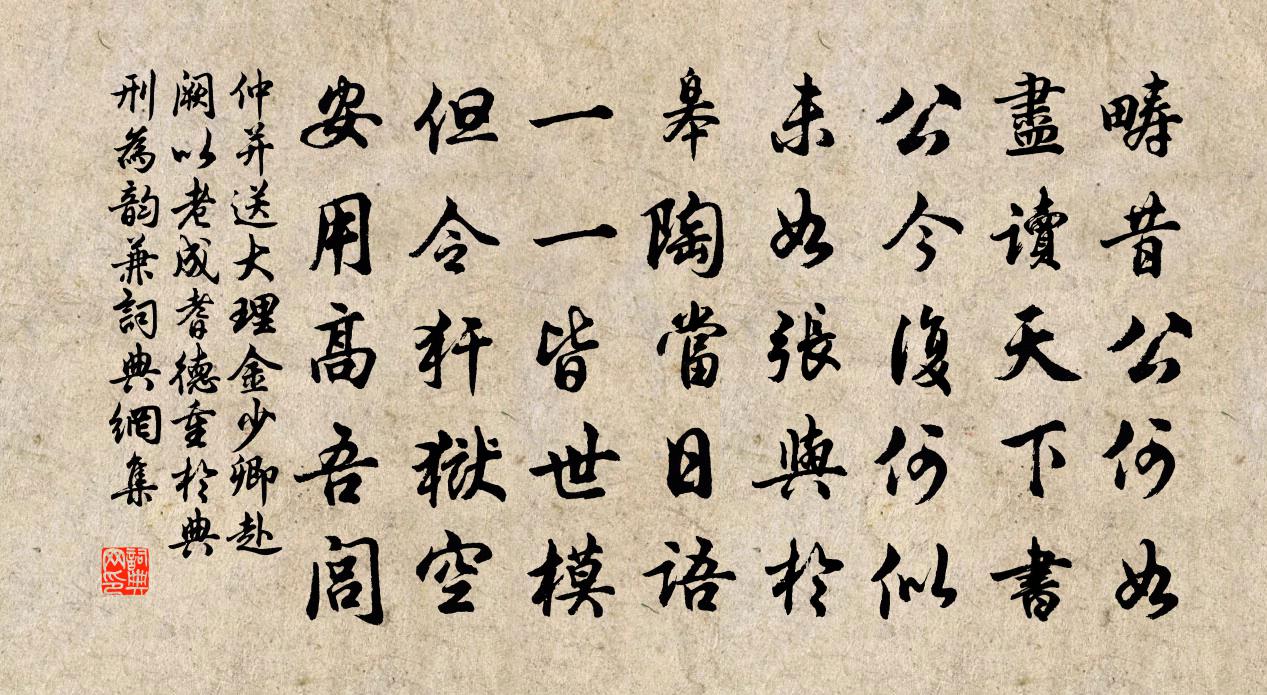 疇昔公何如
盡讀天下書
公今復何似
未如張與於
皋陶當日語
一一皆世模
但令犴獄空
安用高吾閭
仲并送大理金少卿赴
闕以老成耆德重於典
刑為韵兼詞典網集
詞典网印